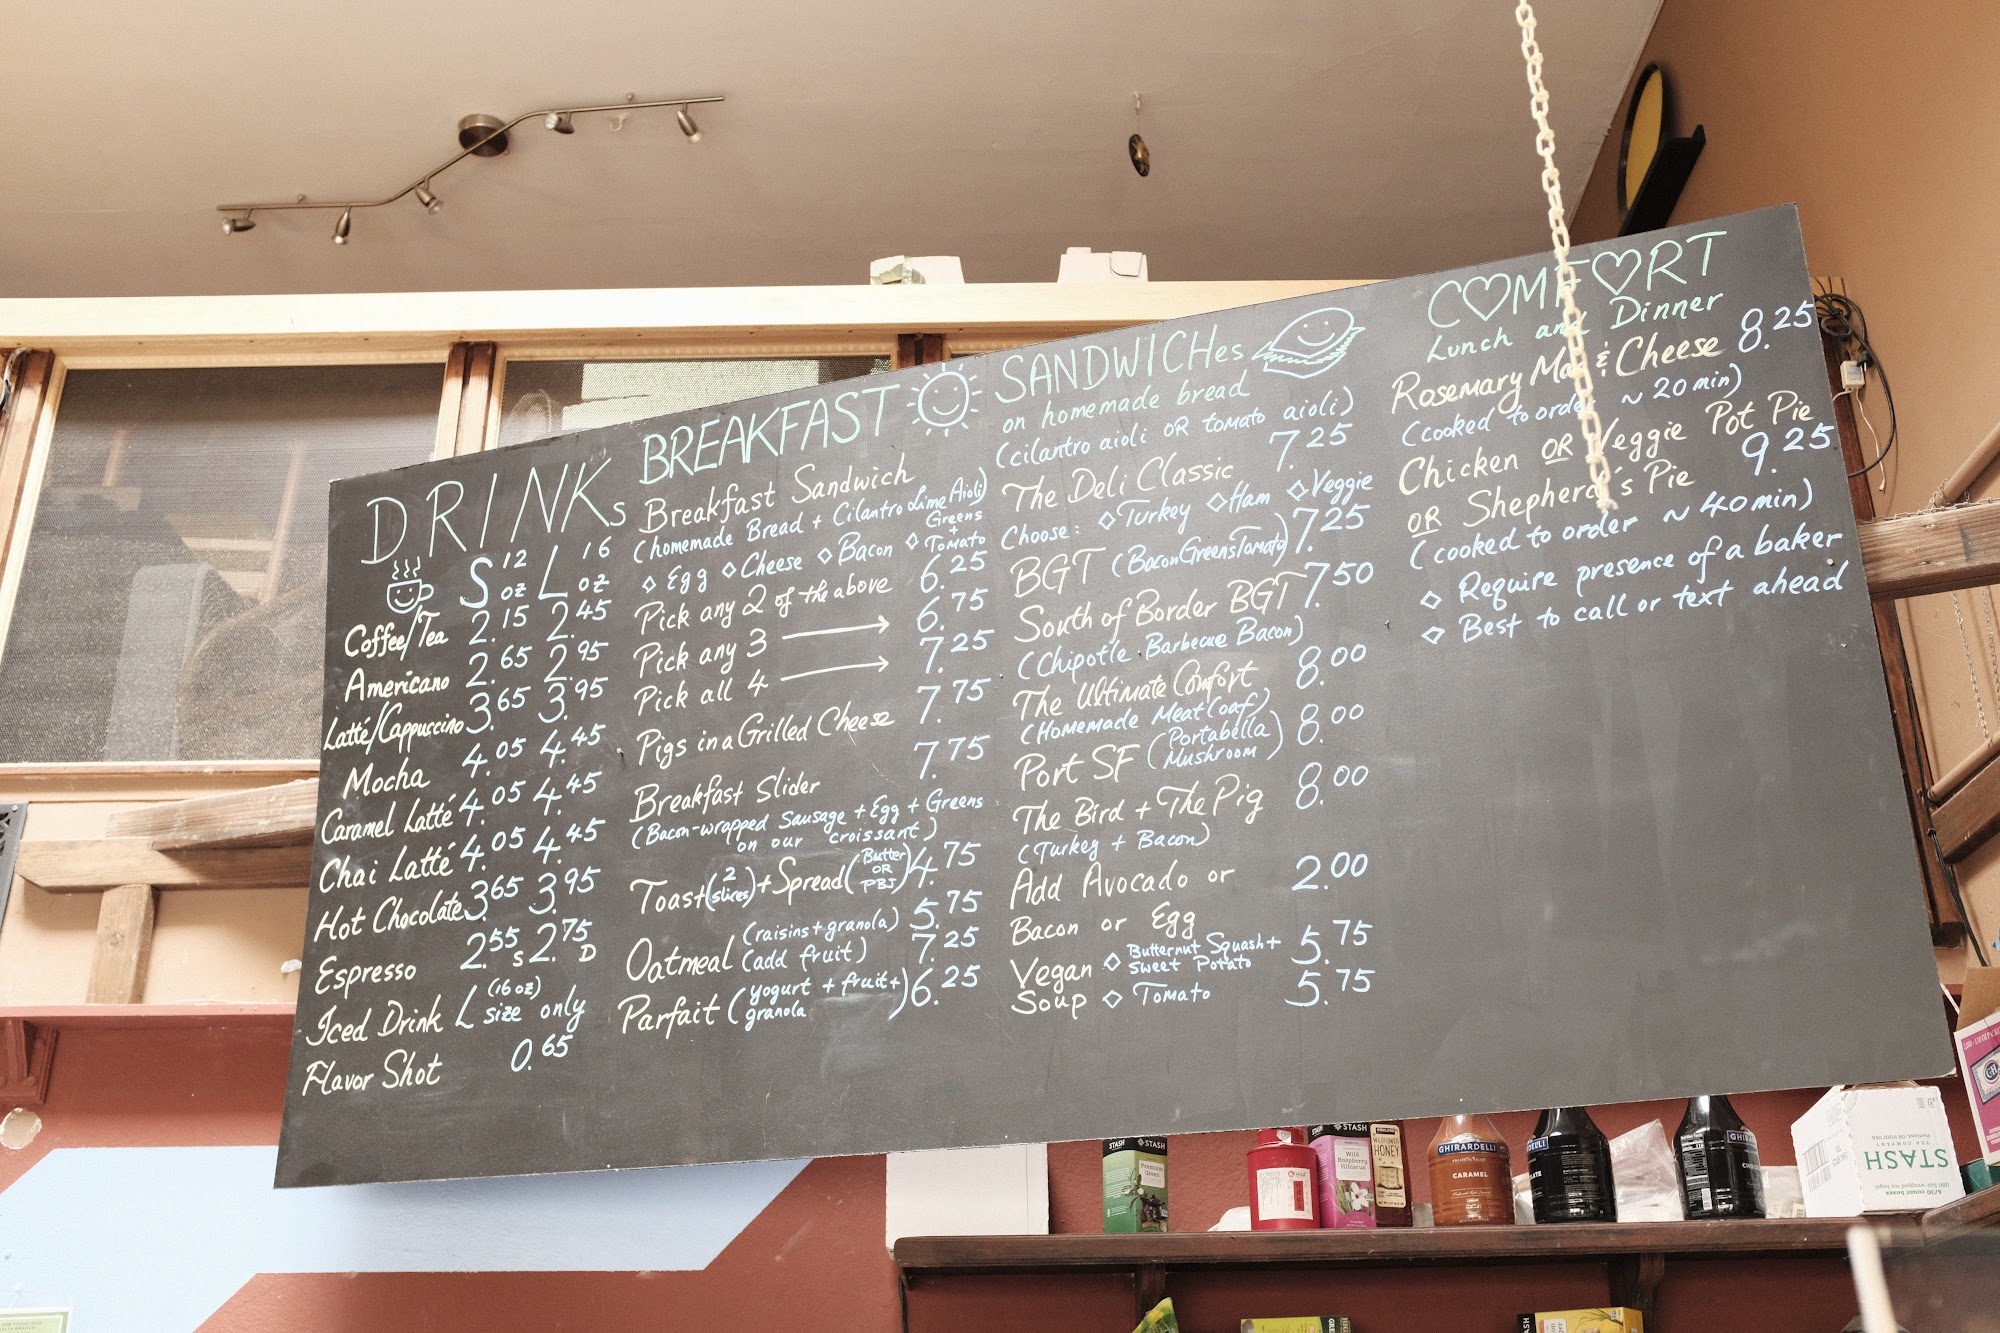 DRINKs
S 12 oz L 16 oz
Coffee/Tea 2.15 2.45
Americano 2.65 2.95
Latté/Cappuccino 3.65 3.95
Mocha 4.05 4.45
Caramel Latté 4.05 4.45
Chai Latté 4.05 4.45
Hot Chocolate 3.65 3.95
Espresso 2.55 S 2.75 D
Iced Drink L (16 oz) size only
Flavor Shot 0.65
BREAKFAST
Breakfast Sandwich
(homemade Bread + Cilantro Lime Aioli)
◇ Egg ◇ Cheese ◇ Bacon ◇ Greens + Tomato
Pick any 2 of the above 6.25
Pick any 3 → 6.75
Pick all 4 → 7.25
Pigs in a Grilled Cheese 7.75
Breakfast Slider 7.75
(Bacon-wrapped Sausage + Egg + Greens
on our croissant)
Toast (2 slices) + Spread (Butter OR PBJ) 4.75
Oatmeal (raisins + granola) 5.75
(add fruit) 7.25
Parfait (yogurt + fruit + granola) 6.25
SANDWICHes
on homemade bread
(cilantro aioli OR tomato aioli)
The Deli Classic 7.25
Choose: ◇ Turkey ◇ Ham ◇ Veggie
BGT (Bacon Greens Tomato) 7.25
South of Border BGT 7.50
(Chipotle Barbecue Bacon)
The Ultimate Comfort 8.00
(Homemade Meat Loaf)
Port SF (Portabella Mushroom) 8.00
The Bird + The Pig 8.00
(Turkey + Bacon)
Add Avocado or 2.00
Bacon or Egg
Vegan Soup ◇ Butternut Squash + Sweet Potato 5.75
◇ Tomato 5.75
COMFORT
Lunch and Dinner
Rosemary Mac & Cheese 8.25
(cooked to order ~ 20 min)
Chicken OR Veggie Pot Pie
OR Shepherd's Pie 9.25
(cooked to order ~ 40 min)
◇ Require presence of a baker
◇ Best to call or text ahead
STASH
STASH
Premium Green
STASH
Wild Raspberry Hibiscus
WILDFLOWER
HONEY
GHIRARDELLI
CARAMEL
GHIRARDELLI
STASH
TEA COMPANY